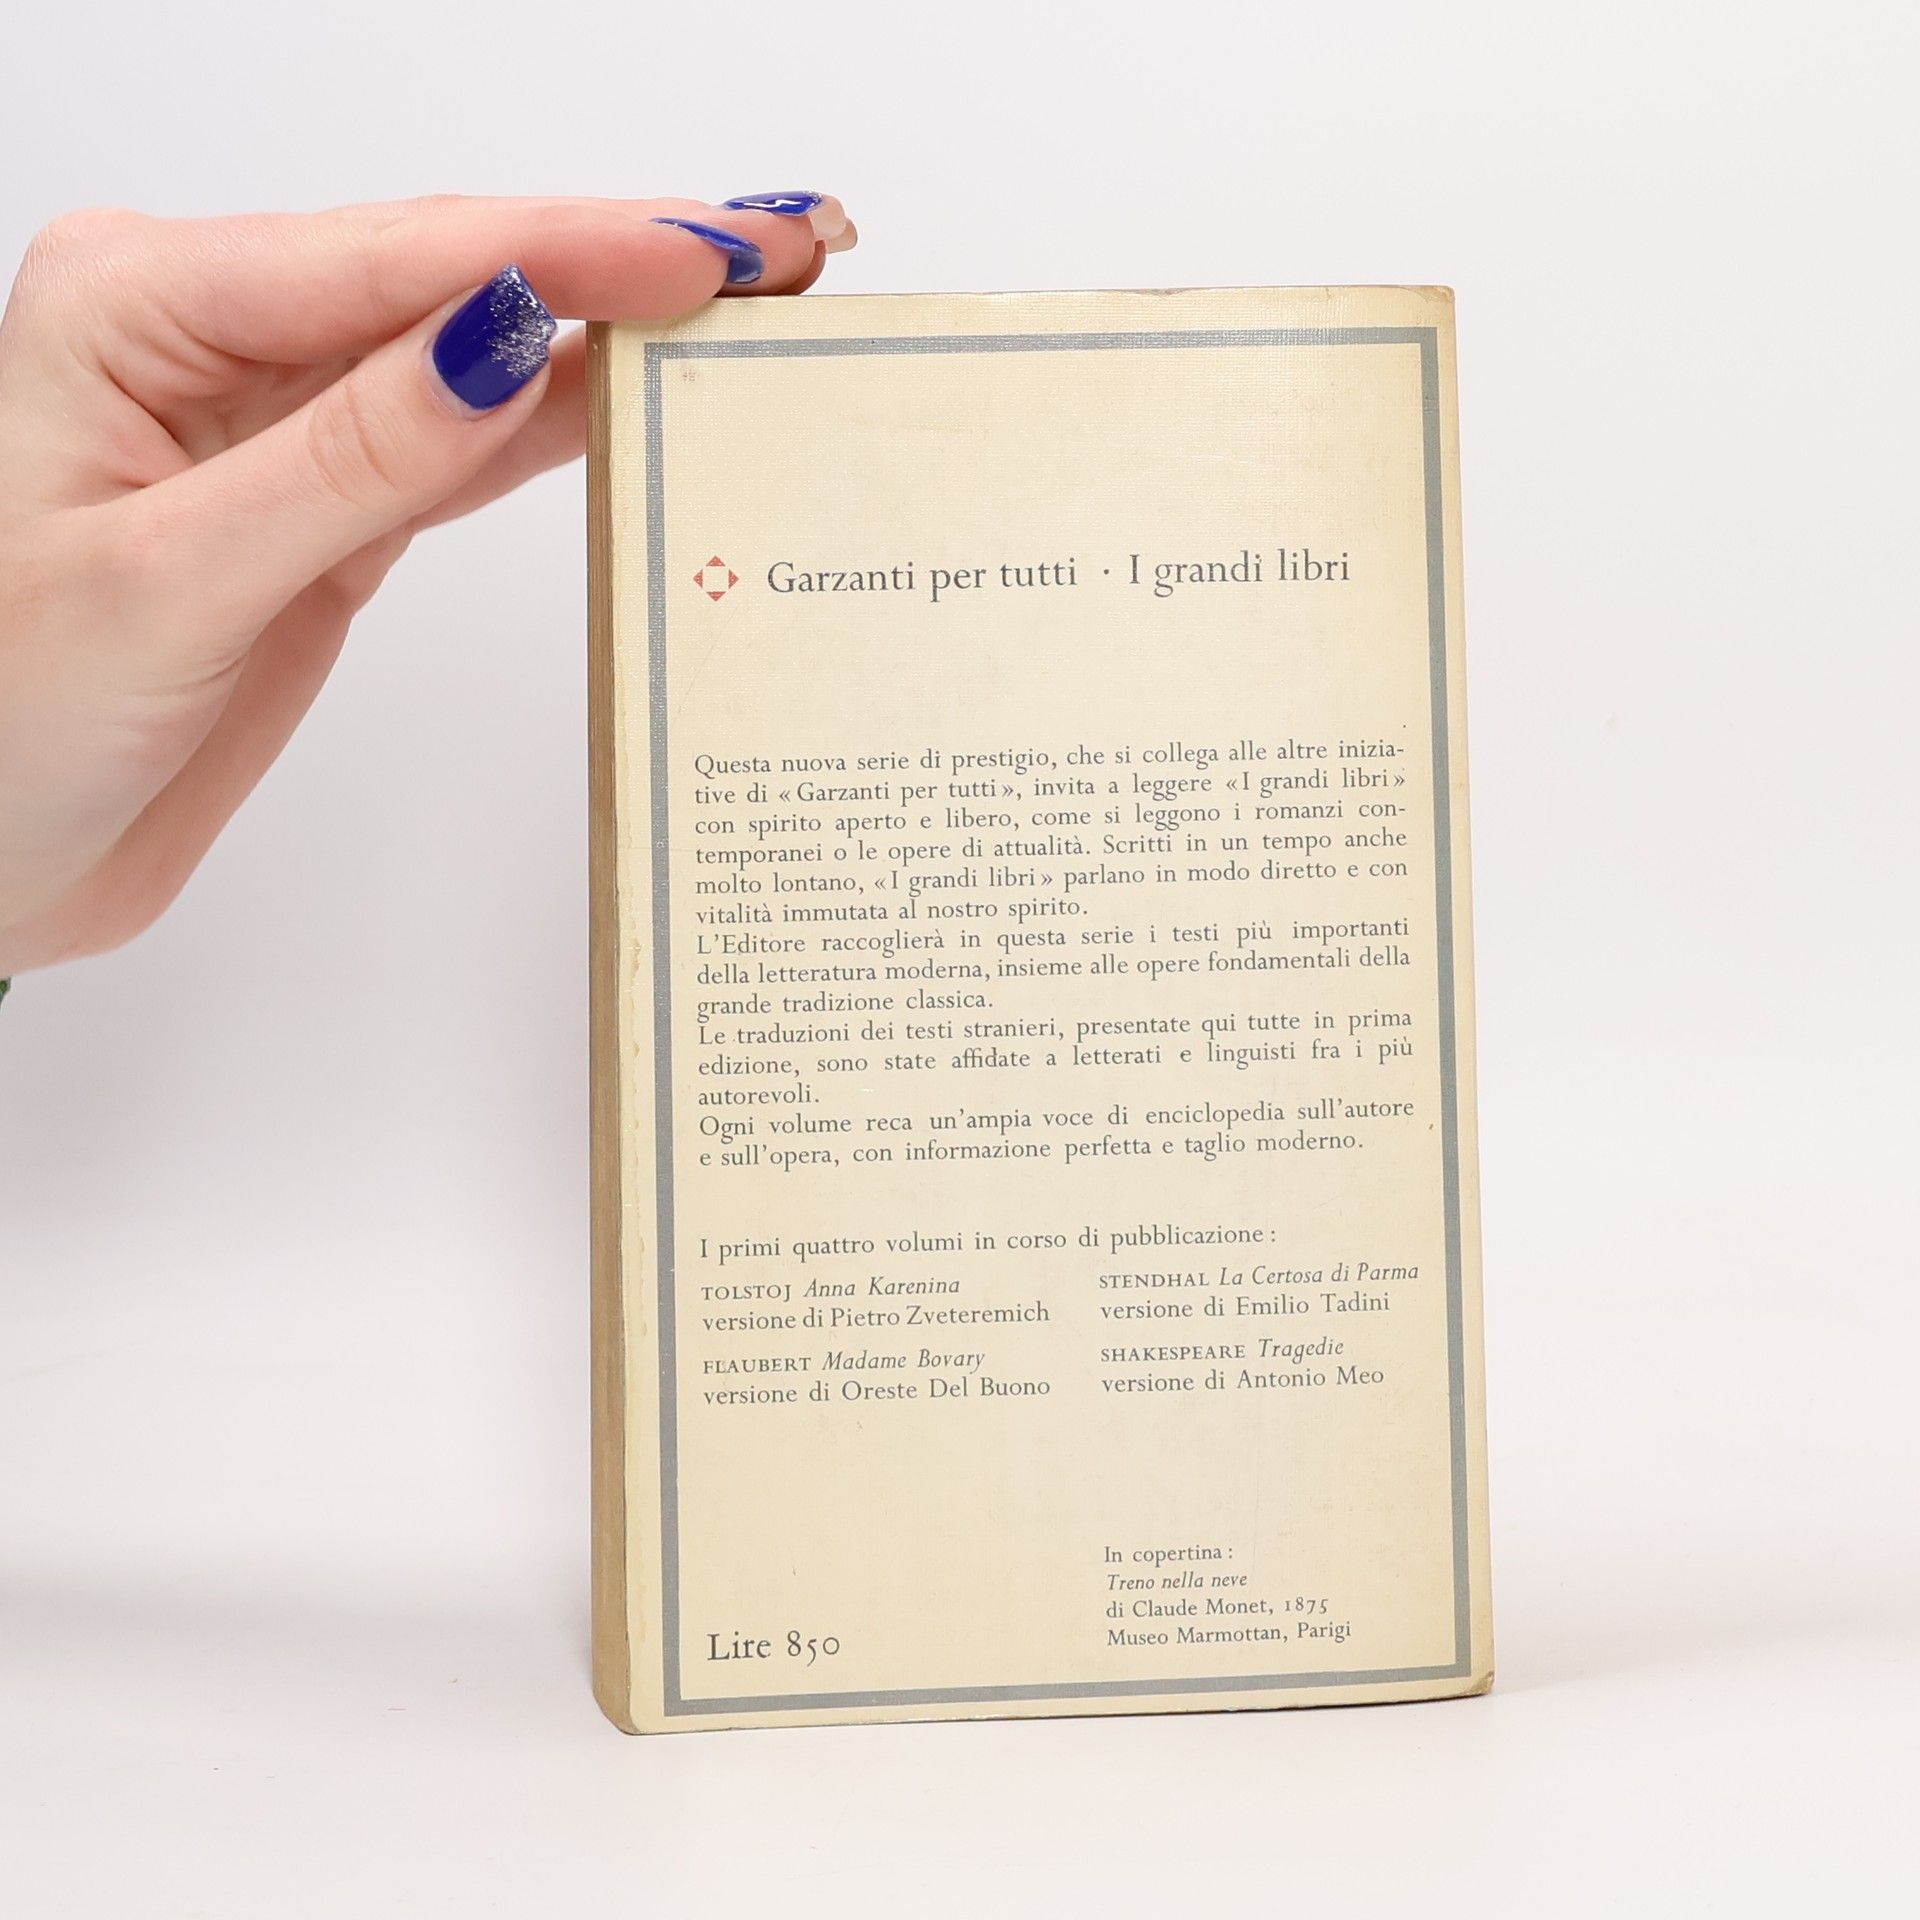 Garzanti per tutti · I grandi libri
Questa nuova serie di prestigio, che si collega alle altre inizia-
tive di «Garzanti per tutti», invita a leggere «I grandi libri»
con spirito aperto e libero, come si leggono i romanzi con-
temporanei o le opere di attualità. Scritti in un tempo anche
molto lontano, «I grandi libri» parlano in modo diretto e con
vitalità immutata al nostro spirito.
L'Editore raccoglierà in questa serie i testi più importanti
della letteratura moderna, insieme alle opere fondamentali della
grande tradizione classica.
Le traduzioni dei testi stranieri, presentate qui tutte in prima
edizione, sono state affidate a letterati e linguisti fra i più
autorevoli.
Ogni volume reca un'ampia voce di enciclopedia sull'autore
e sull'opera, con informazione perfetta e taglio moderno.
I primi quattro volumi in corso di pubblicazione:
TOLSTOJ Anna Karenina
versione di Pietro Zveteremich
FLAUBERT Madame Bovary
versione di Oreste Del Buono
STENDHAL La Certosa di Parma
versione di Emilio Tadini
SHAKESPEARE Tragedie
versione di Antonio Meo
In copertina:
Treno nella neve
di Claude Monet, 1875
Museo Marmottan, Parigi
Lire 850